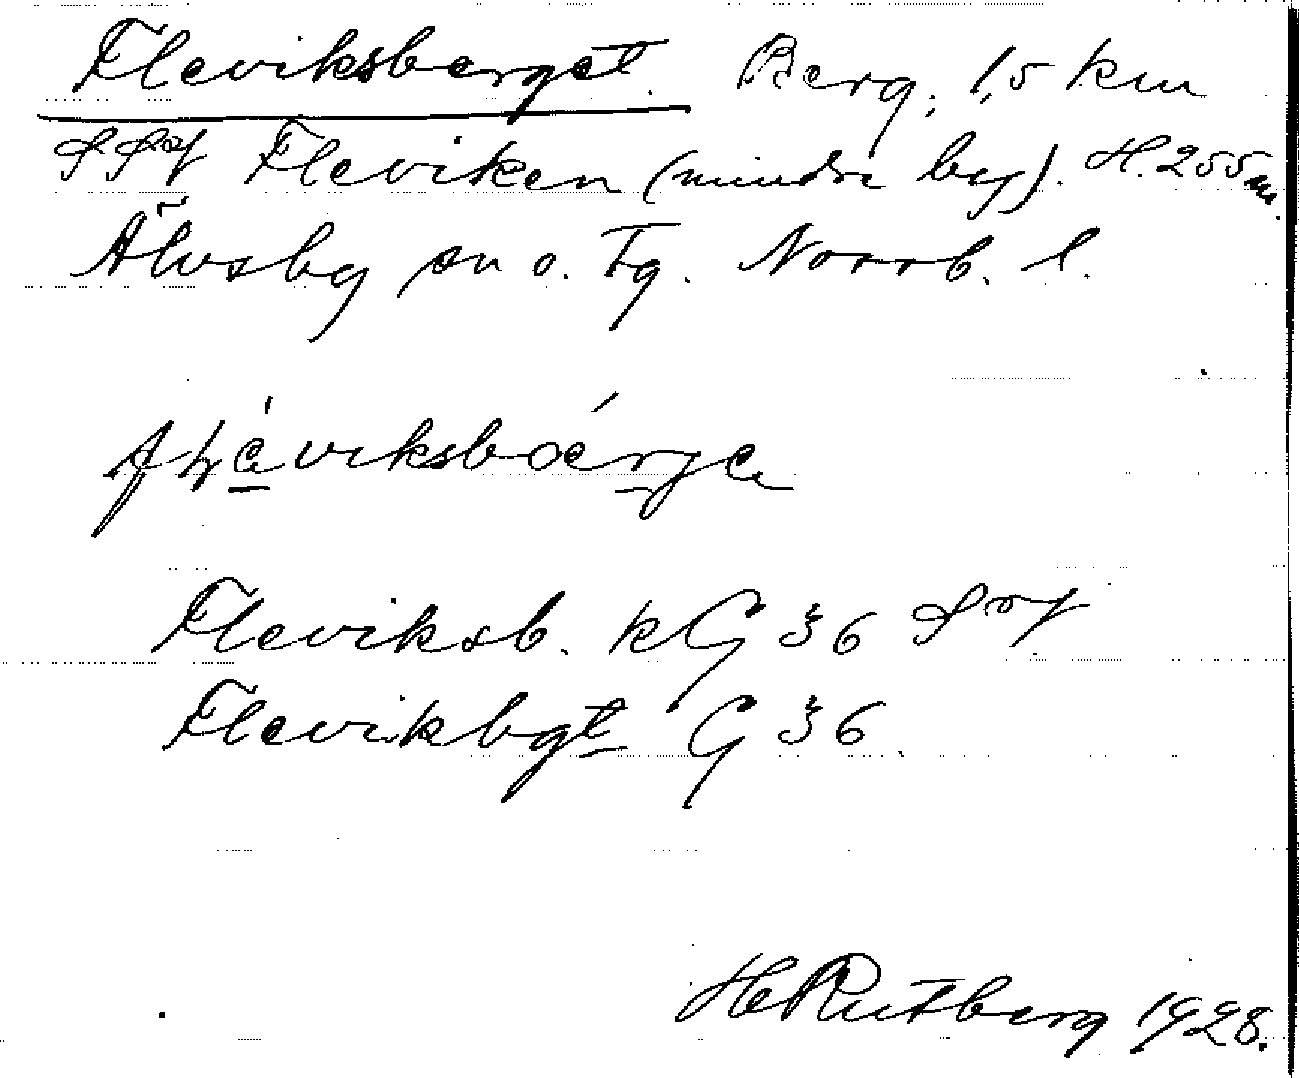 Fleviksberget. Berg, 1,5 km
SSV Fleviken (mindre by). H. 255 m.
Älvsby sn o. Tg. Norrb. l.
Fleviksb. kG 36 SV
Flevikbgt G 36
H Rutberg 1928.